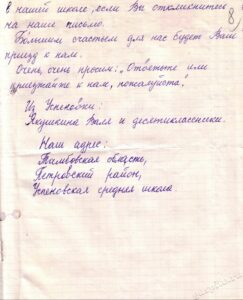 8
в нашей школе, если Вы откликнитесь
на наше письмо.
Большим счастьем для нас будет Ваш
приезд к нам.
Очень, очень просим: „Ответьте или
приезжайте к нам, пожалуйста".
Из Успеновки:
Якушкина Валя и десятиклассники.
Наш адрес:
Тамбовская область,
Петровский район,
Успеновская средняя школа